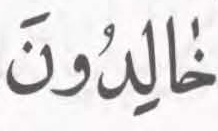 خَالِدُونَ